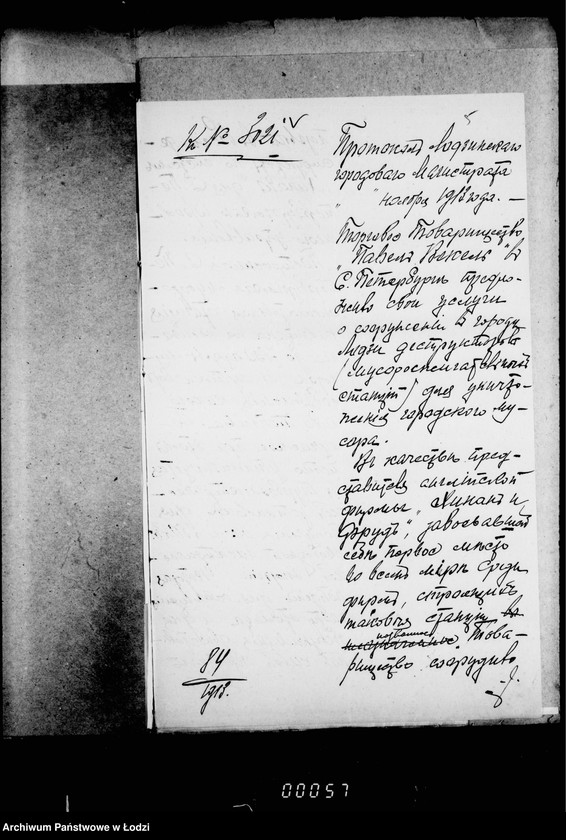 К. № 3021 IV
Протоколъ Лодзинскаго
городоваго Магистрата
" " ноября 1912 года. —
Торговое Товарищество
"Павелъ Бекель" въ
С. Петербургѣ предло-
жило свои услуги
о сооруженіи въ городѣ
Лодзи деструкторовъ
(мусоросжигательной
станціи) для уничто-
женія городского му-
сора.
Въ качествѣ пред-
ставителя англійской
фирмы "Хинанъ и
Фрудъ", завоевавшей
себѣ первое мѣсто
во всемъ мірѣ среди
фирмъ, строющихъ
таковыя станціи
названное Това-
рищество соорудило
84
1913.
00057
Archiwum Państwowe w Łodzi